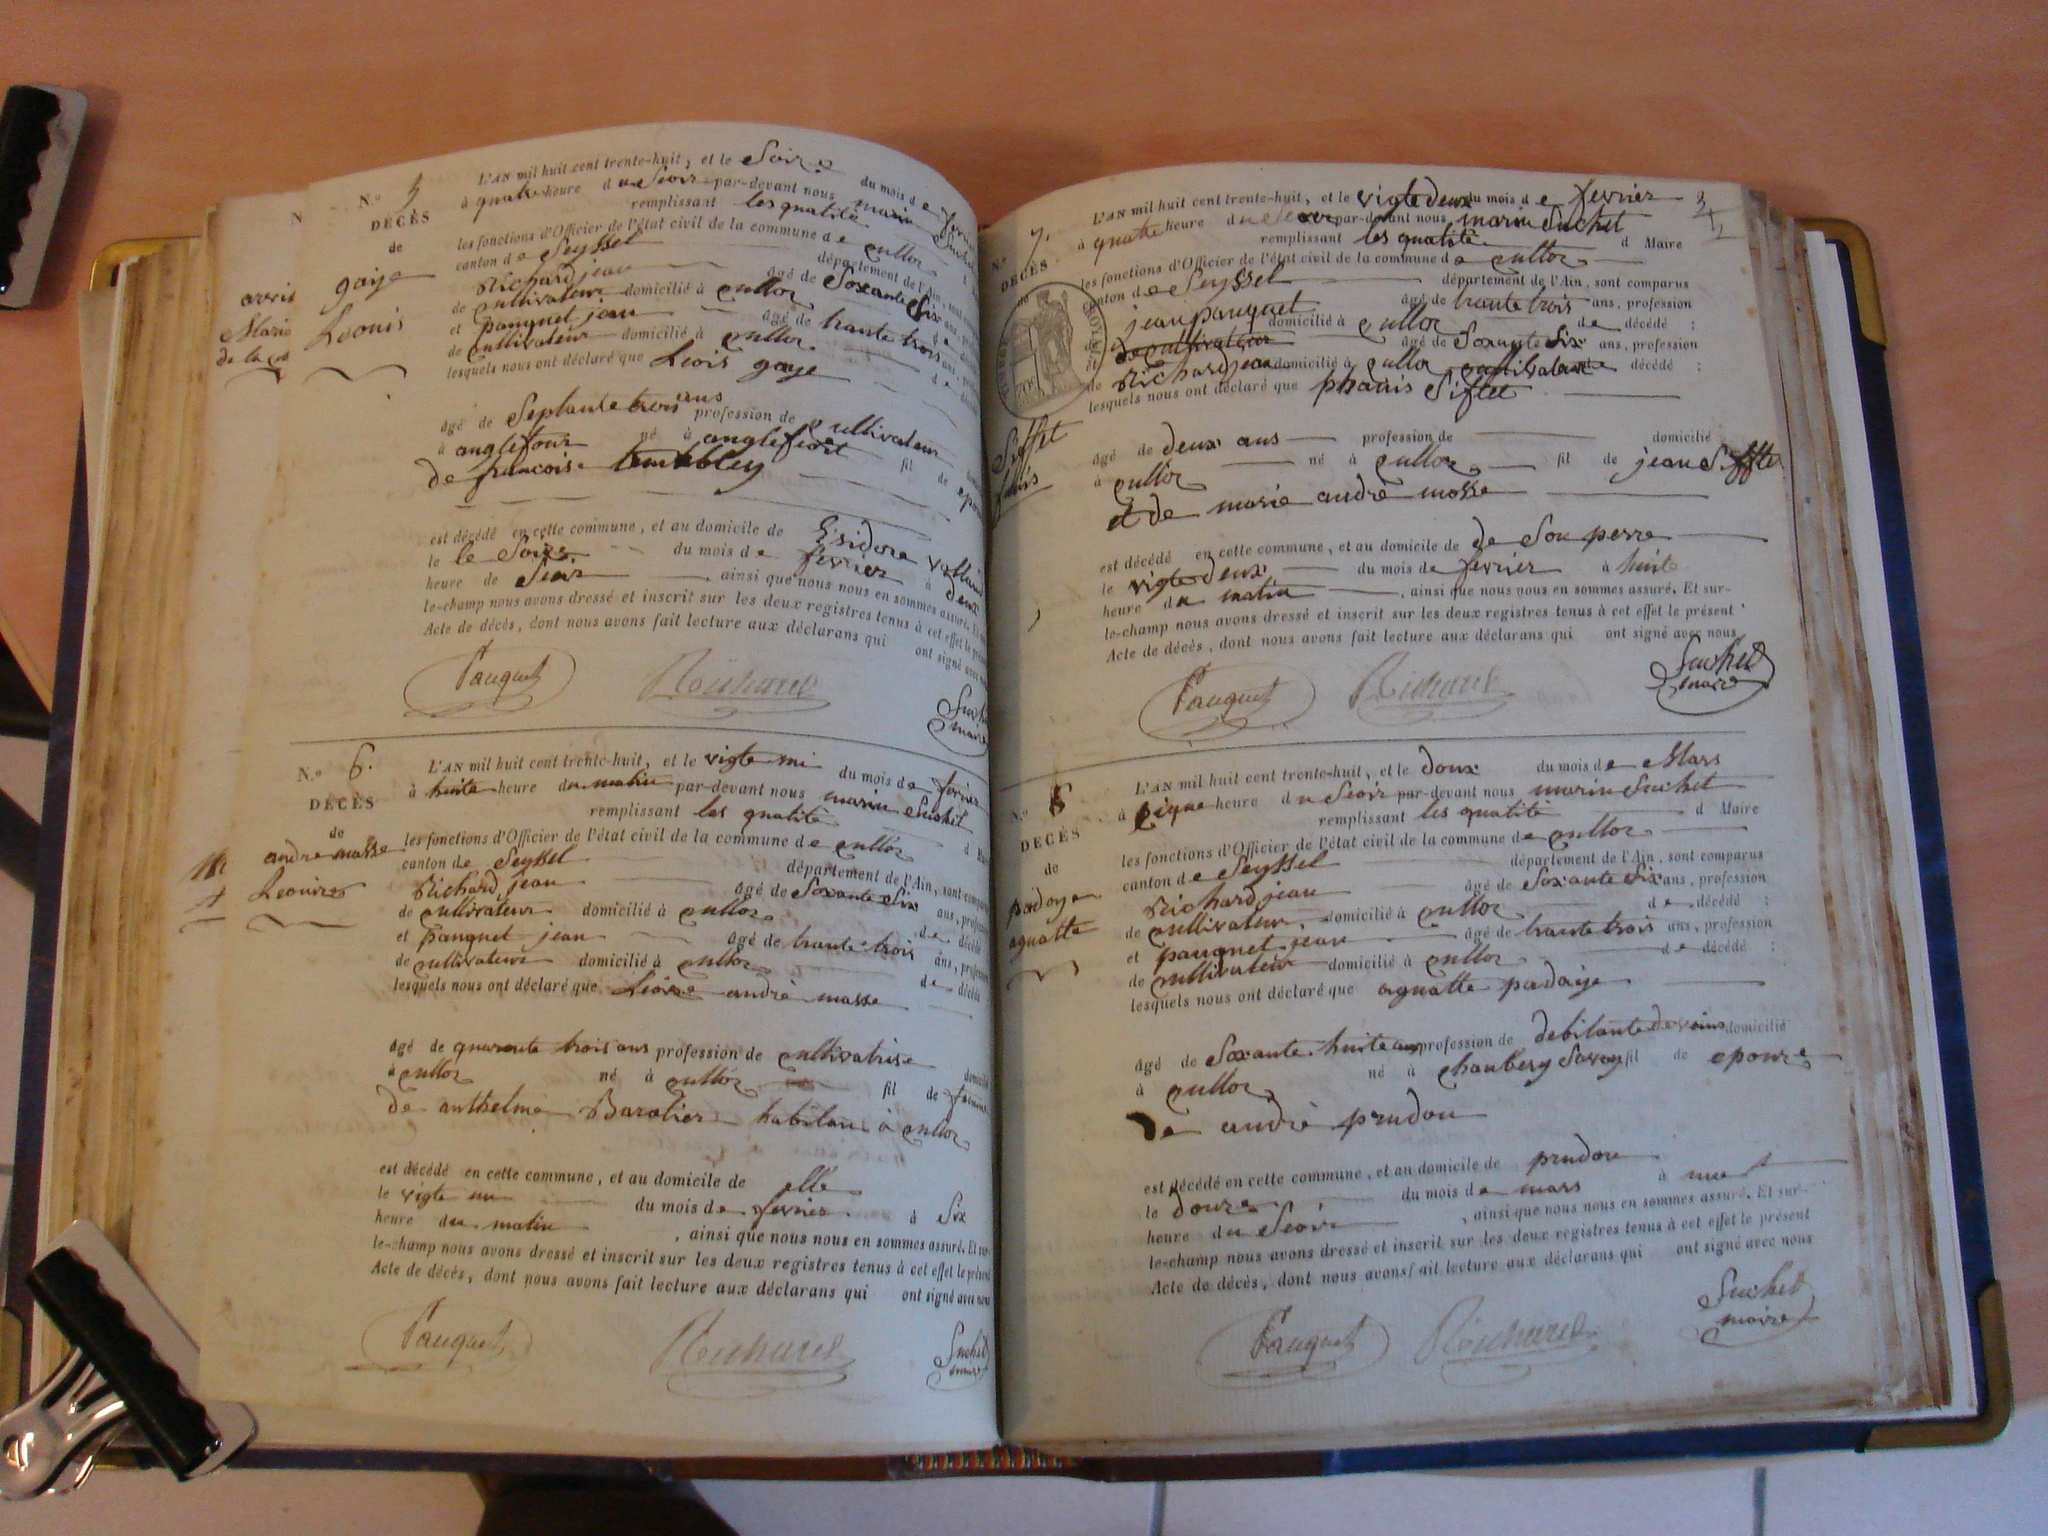 N.º 5
DÉCÈS
de
gaye
Leouis
L'AN mil huit cent trente-huit, et le Seize du mois de
à quatre heure du Seoir par-devant nous marin
remplissant les qualité
les fonctions d'Officier de l'état civil de la commune de culloz
canton de Seyssel département de l'Ain, sont
Richard jean âgé de Soxante Six ans
de cultivateur domicilié à culloz
et pauquet jean âgé de trante trois ans
de cultivateur domicilié à culloz
lesquels nous ont déclaré que Leois gaye
âgé de Septante trois ans profession de cultivateur
à anglefour né à anglefort fil de
de francoise
est décédé en cette commune, et au domicile de
le le Seize du mois de fevrier à deux
heure de Seoir, ainsi que nous nous en sommes assuré. Et
le-champ nous avons dressé et inscrit sur les deux registres tenus à cet effet le
Acte de décès, dont nous avons fait lecture aux déclarans qui ont signé avec
Pauquet Richard
N.º 6.
DÉCÈS
de
andre masse
L'AN mil huit cent trente-huit, et le vigte un du mois de fevrier
à huite heure du matin par-devant nous marin Suchet
remplissant les qualité
les fonctions d'Officier de l'état civil de la commune de culloz
canton de Seyssel département de l'Ain, sont comparus
Richard jean âgé de Soxante Six ans, profession
de cultivateur domicilié à culloz de décédé
et pauquet jean âgé de trante trois ans, profession
de cultivateur domicilié à culloz de décédé
lesquels nous ont déclaré que andrè masse
âgé de quarante trois ans profession de cultivatrise
à culloz né à culloz fil de
de anthelme Baratier habitan à culloz
est décédé en cette commune, et au domicile de elle
le vigte un du mois de fevrier à Six
heure du matin, ainsi que nous nous en sommes assuré. Et sur-
le-champ nous avons dressé et inscrit sur les deux registres tenus à cet effet le présent
Acte de décès, dont nous avons fait lecture aux déclarans qui ont signé avec nous
Pauquet Richard Suchet
maire
N.º 7.
DÉCÈS
L'AN mil huit cent trente-huit, et le vigte deux du mois de fevrier
à quatre heure du par-devant nous marin Suchet
remplissant les qualité d Maire
les fonctions d'Officier de l'état civil de la commune de culloz
canton de Seyssel département de l'Ain, sont comparus
jean pauquet âgé de trante trois ans, profession
de cultivateur domicilié à culloz de décédé :
âgé de Soxante Six ans, profession
de Richard jean domicilié à culloz cultivateur décédé :
lesquels nous ont déclaré que Siffet
Siffet
âgé de deux ans profession de domicilié
à culloz né à culloz fil de jean Siffet
et de marie andrè masse
est décédé en cette commune, et au domicile de de Son perre
le vigte deux du mois de fevrier à huite
heure du matin, ainsi que nous nous en sommes assuré. Et sur-
le-champ nous avons dressé et inscrit sur les deux registres tenus à cet effet le présent
Acte de décès, dont nous avons fait lecture aux déclarans qui ont signé avec nous
Pauquet Richard Suchet
maire
N.º 8
DÉCÈS
de
padoye
aguatte
L'AN mil huit cent trente-huit, et le doux du mois de Mars
à heure du Seoir par-devant nous marin Suchet
remplissant les qualité d Maire
les fonctions d'Officier de l'état civil de la commune de culloz
canton de Seyssel département de l'Ain, sont comparus
Richard jean âgé de Soxante Six ans, profession
de cultivateur domicilié à culloz de décédé :
et pauquet jean âgé de trante trois ans, profession
de cultivateur domicilié à culloz de décédé :
lesquels nous ont déclaré que aguatte padaye
âgé de Soxante huite ans profession de debitante de vains domicilié
à culloz né à chanbery Savoy fil de epouze
de andrè prudon
est décédé en cette commune, et au domicile de prudon
le douze du mois de mars à une
heure du Seoir, ainsi que nous nous en sommes assuré. Et sur-
le-champ nous avons dressé et inscrit sur les deux registres tenus à cet effet le présent
Acte de décès, dont nous avons fait lecture aux déclarans qui ont signé avec nous
Pauquet Richard Suchet
maire